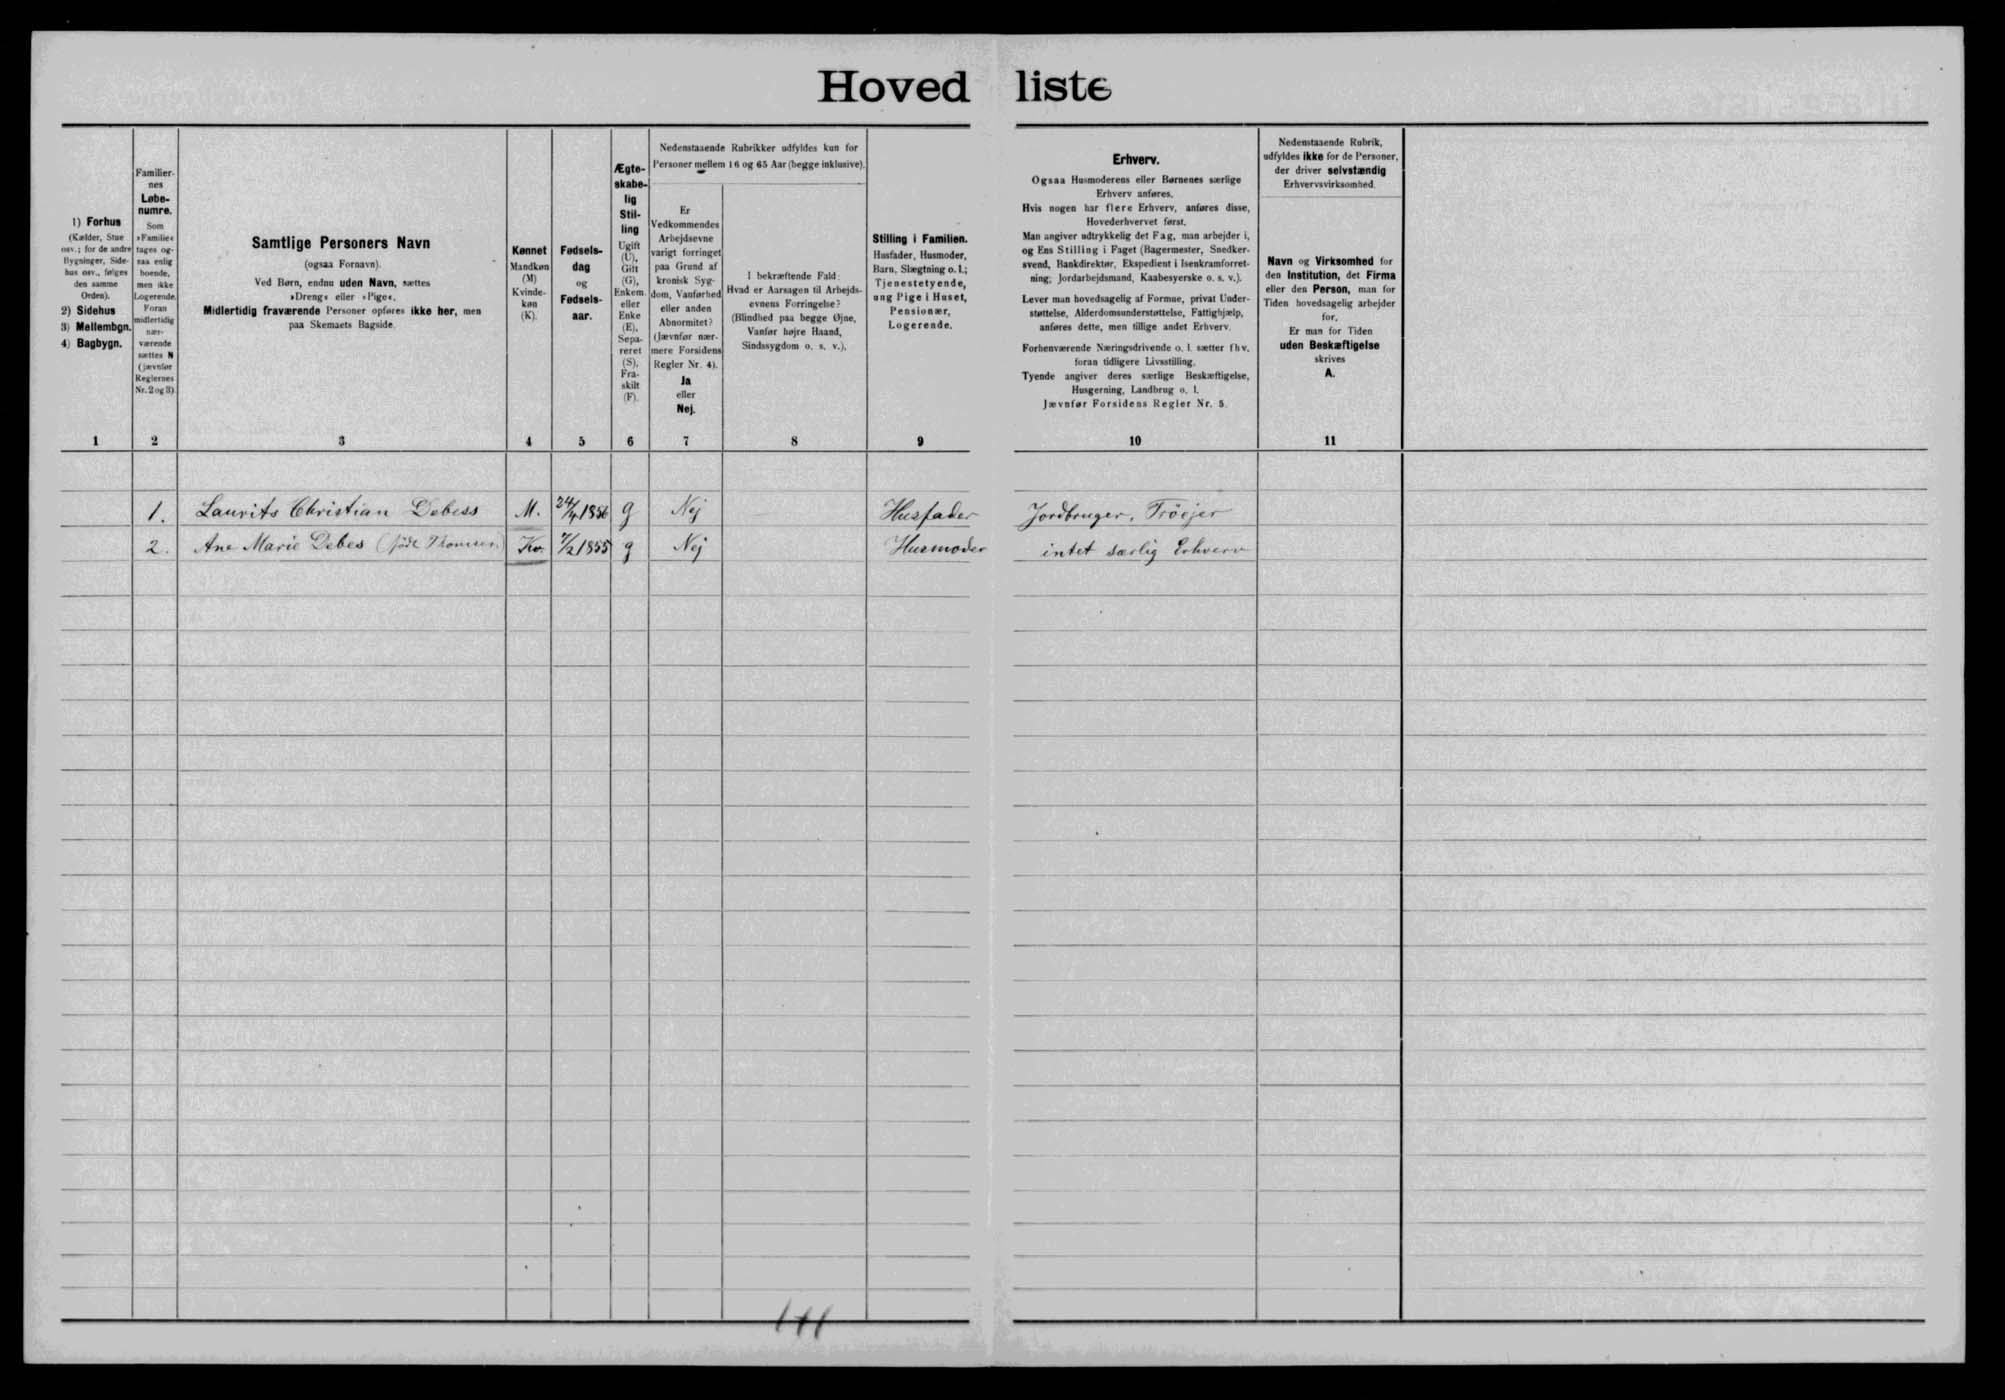 Hovedliste
1) Forhus
(Kælder, Stue
osv.; for de andre
Bygninger, Side-
hus osv., følges
den samme
Orden).
2) Sidehus
3) Mellembgn.
4) Bagbygn.
1
Familier-
nes
Løbe-
numre.
Som
»Familie«
tages og-
saa enlig
boende,
men ikke
Logerende.
Foran
midlertidig
nær-
værende
sættes N
(jævnfør
Reglernes
Nr. 2 og 3)
2
Samtlige Personers Navn
(ogsaa Fornavn).
Ved Børn, endnu uden Navn, sættes
»Dreng« eller »Pige«.
Midlertidig fraværende Personer opføres ikke her, men
paa Skemaets Bagside.
3
Kønnet
Mandkøn
(M)
Kvinde-
køn
(K).
4
Fødsels-
dag
og
Fødsels-
aar.
5
Ægte-
skabe-
lig
Stil-
ling
Ugift
(U),
Gift
(G),
Enkem.
eller
Enke
(E),
Sepa-
reret
(S),
Fra-
skilt
(F).
6
Nedenstaaende Rubrikker udfyldes kun for
Personer mellem 16 og 65 Aar (begge inklusive).
Er
Vedkommendes
Arbejdsevne
varigt forringet
paa Grund af
kronisk Syg-
dom, Vanførhed
eller anden
Abnormitet?
(Jævnfør nær-
mere Forsidens
Regler Nr. 4).
Ja
eller
Nej.
7
I bekræftende Fald:
Hvad er Aarsagen til Arbejds-
evnens Forringelse?
(Blindhed paa begge Øjne,
Vanfør højre Haand,
Sindssygdom o. s. v.).
8
Stilling i Familien.
Husfader, Husmoder,
Barn, Slægtning o. l.;
Tjenestetyende,
ung Pige i Huset,
Pensionær,
Logerende.
9
Erhverv.
Ogsaa Husmoderens eller Børnenes særlige
Erhverv anføres.
Hvis nogen har flere Erhverv, anføres disse,
Hovederhvervet først.
Man angiver udtrykkelig det Fag, man arbejder i,
og Ens Stilling i Faget (Bagermester, Snedker-
svend, Bankdirektør, Ekspedient i Isenkramforret-
ning; Jordarbejdsmand, Kaabesyerske o. s. v.).
Lever man hovedsagelig af Formue, privat Under-
støttelse, Alderdomsunderstøttelse, Fattighjælp,
anføres dette, men tillige andet Erhverv.
Forhenværende Næringsdrivende o. l. sætter fhv.
foran tidligere Livsstilling.
Tyende angiver deres særlige Beskæftigelse,
Husgerning, Landbrug o. l.
Jævnfør Forsidens Regler Nr. 5.
10
Nedenstaaende Rubrik,
udfyldes ikke for de Personer,
der driver selvstændig
Erhvervsvirksomhed.
Navn og Virksomhed for
den Institution, det Firma
eller den Person, man for
Tiden hovedsagelig arbejder
for.
Er man for Tiden
uden Beskæftigelse
skrives
A.
11
1. Laurits Christian Debess M. 24/4 1856 g Nej Husfader Jordbruger, Tröejer
2. Ane Marie Debes (föde Thomsen) Kv. 7/2 1855 g Nej Husmoder intet særlig Erhverv